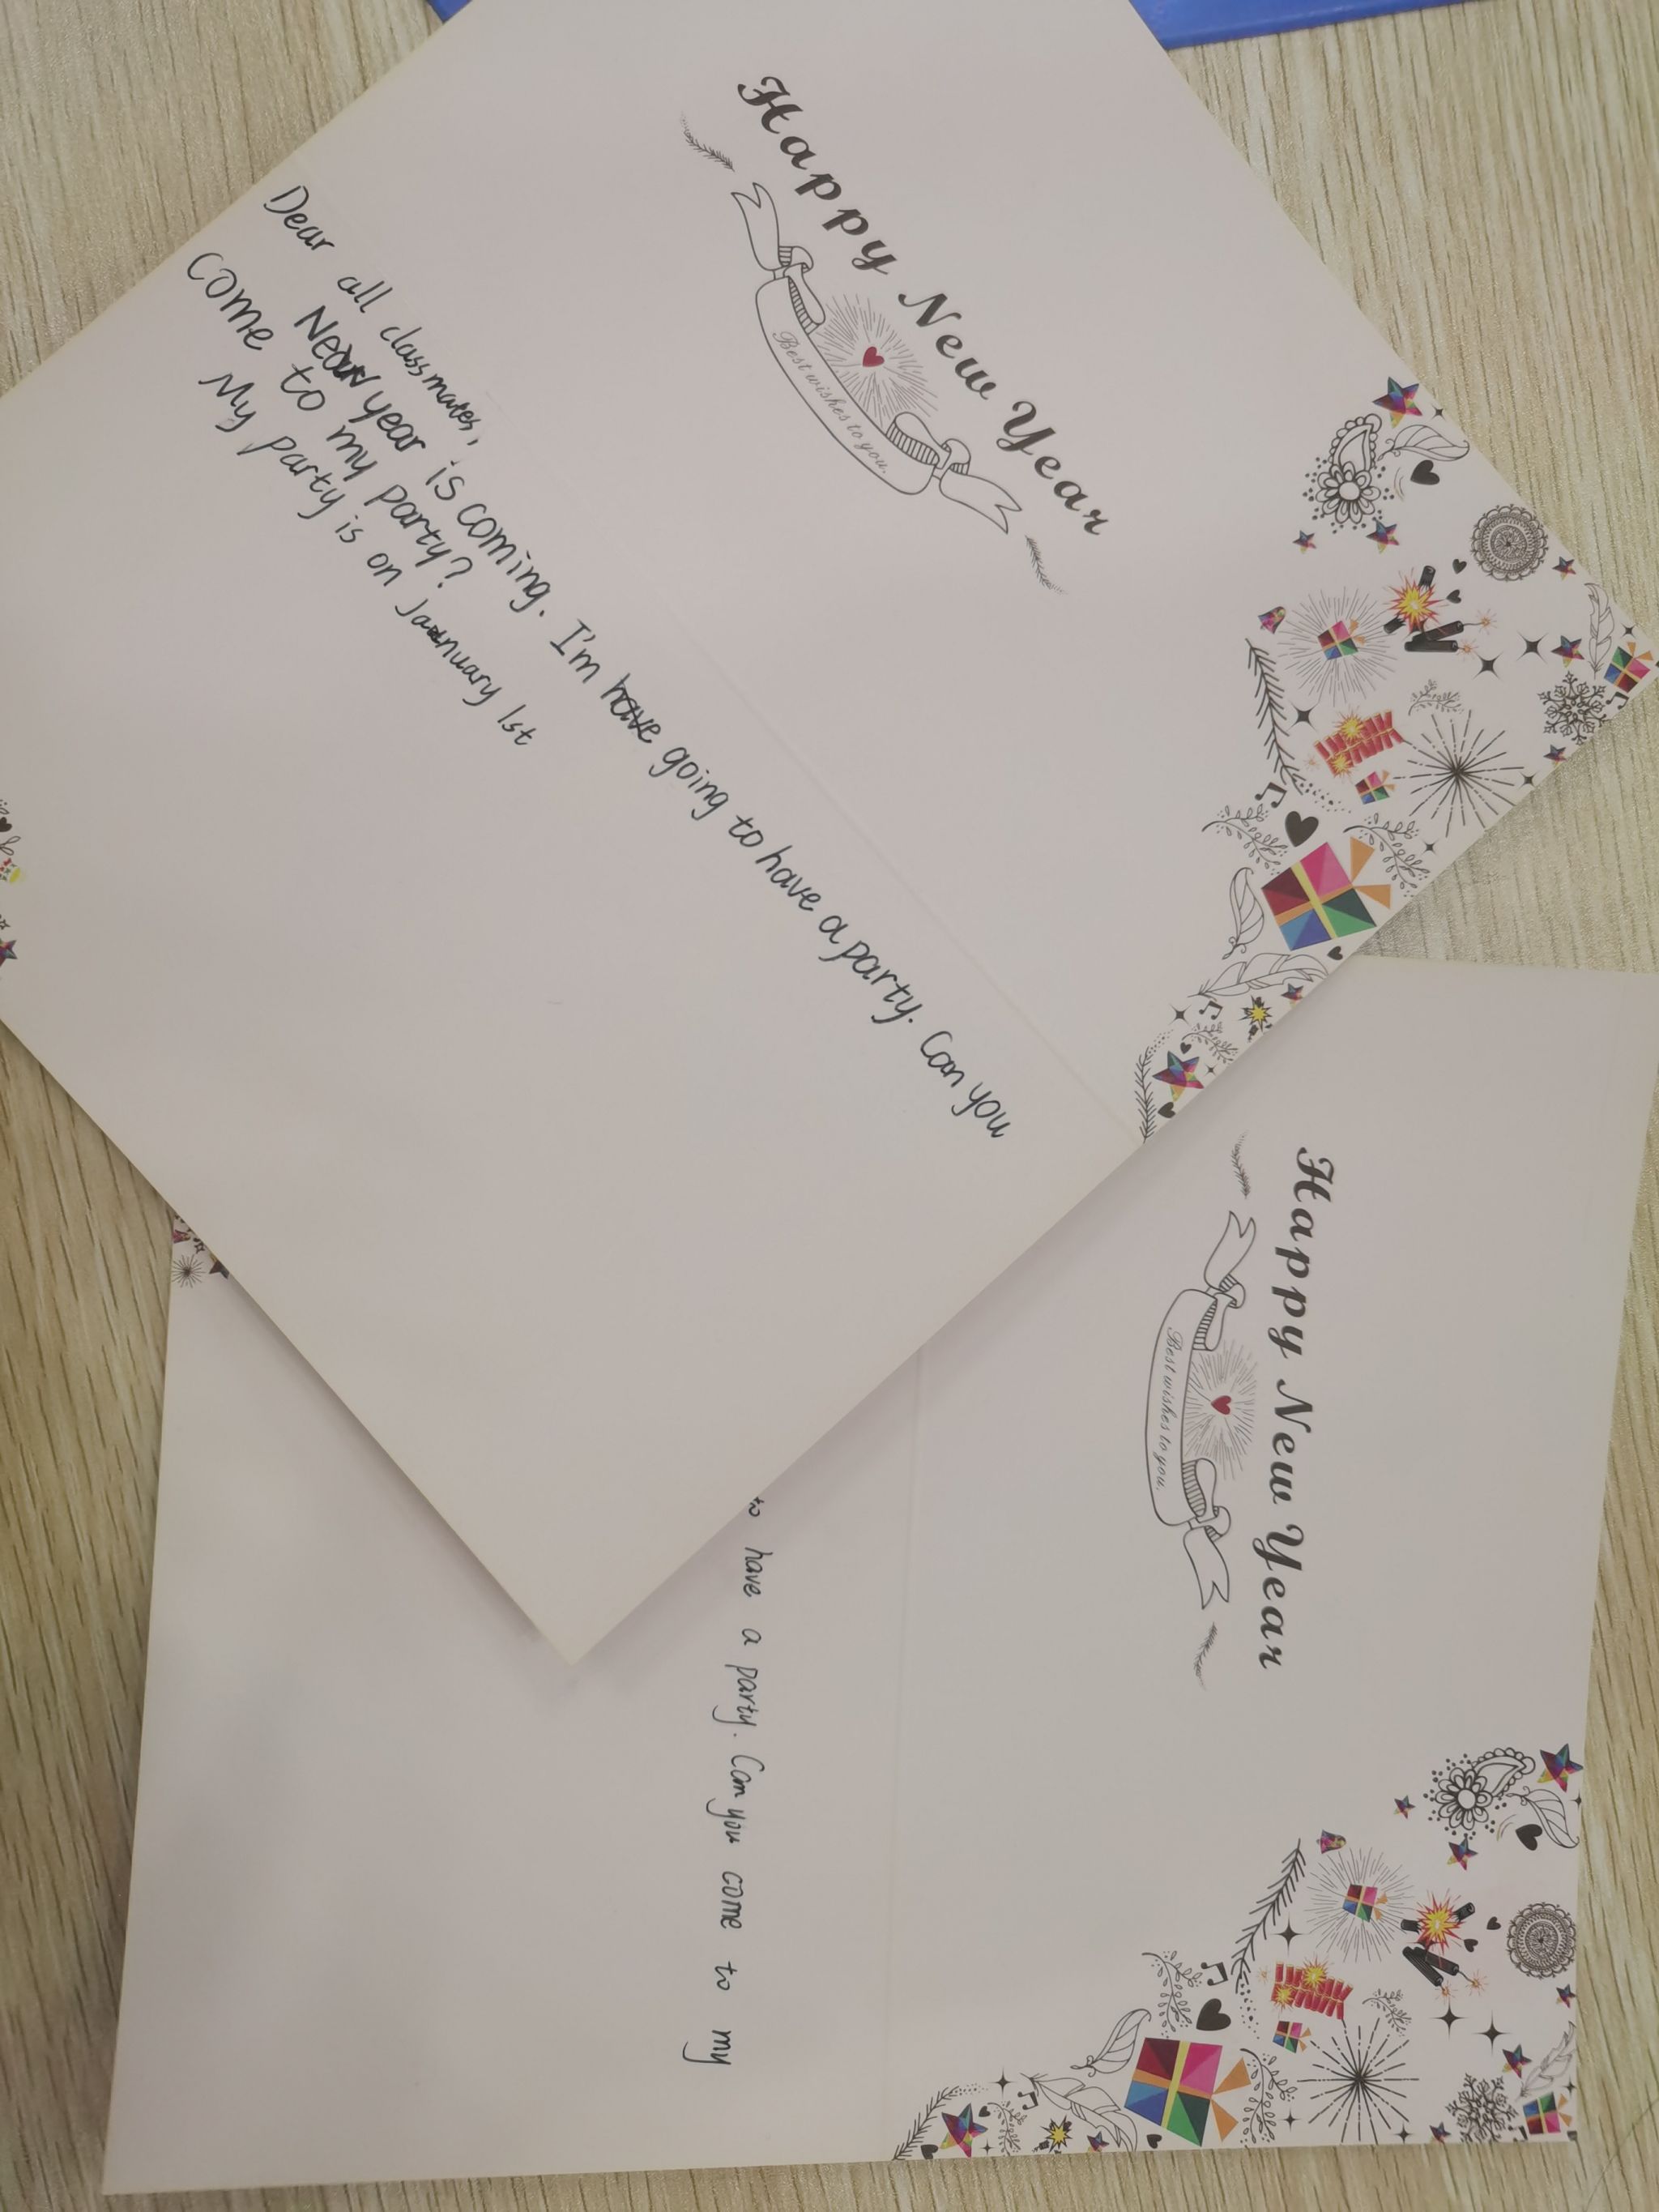 Happy New Year
Best wishes to you.
Dear all classmates,
New year is coming. I'm have going to have a party. Can you
come to my party?
My party is on January 1st
Happy New Year
Best wishes to you.
to have a party. Can you come to my